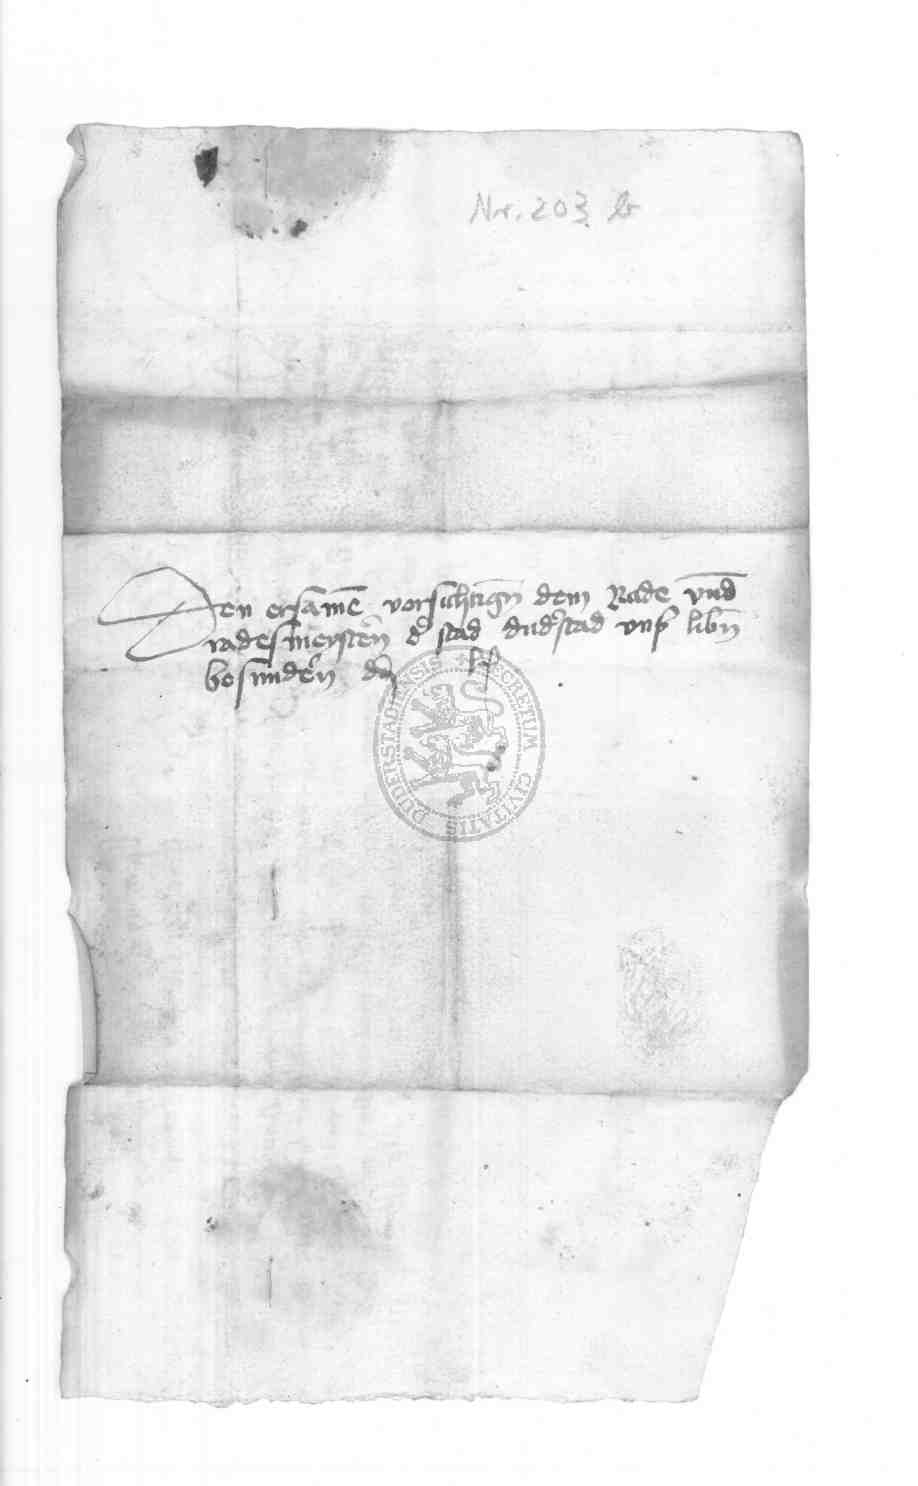 Nr. 203 b
Den ersamē vorsichtigñ dem Rade vnd
radesmeysterñ d' stad dud'stad vns' libñ
besunderñ
SECRETUM CIVITATIS DUDERSTADIENSIS